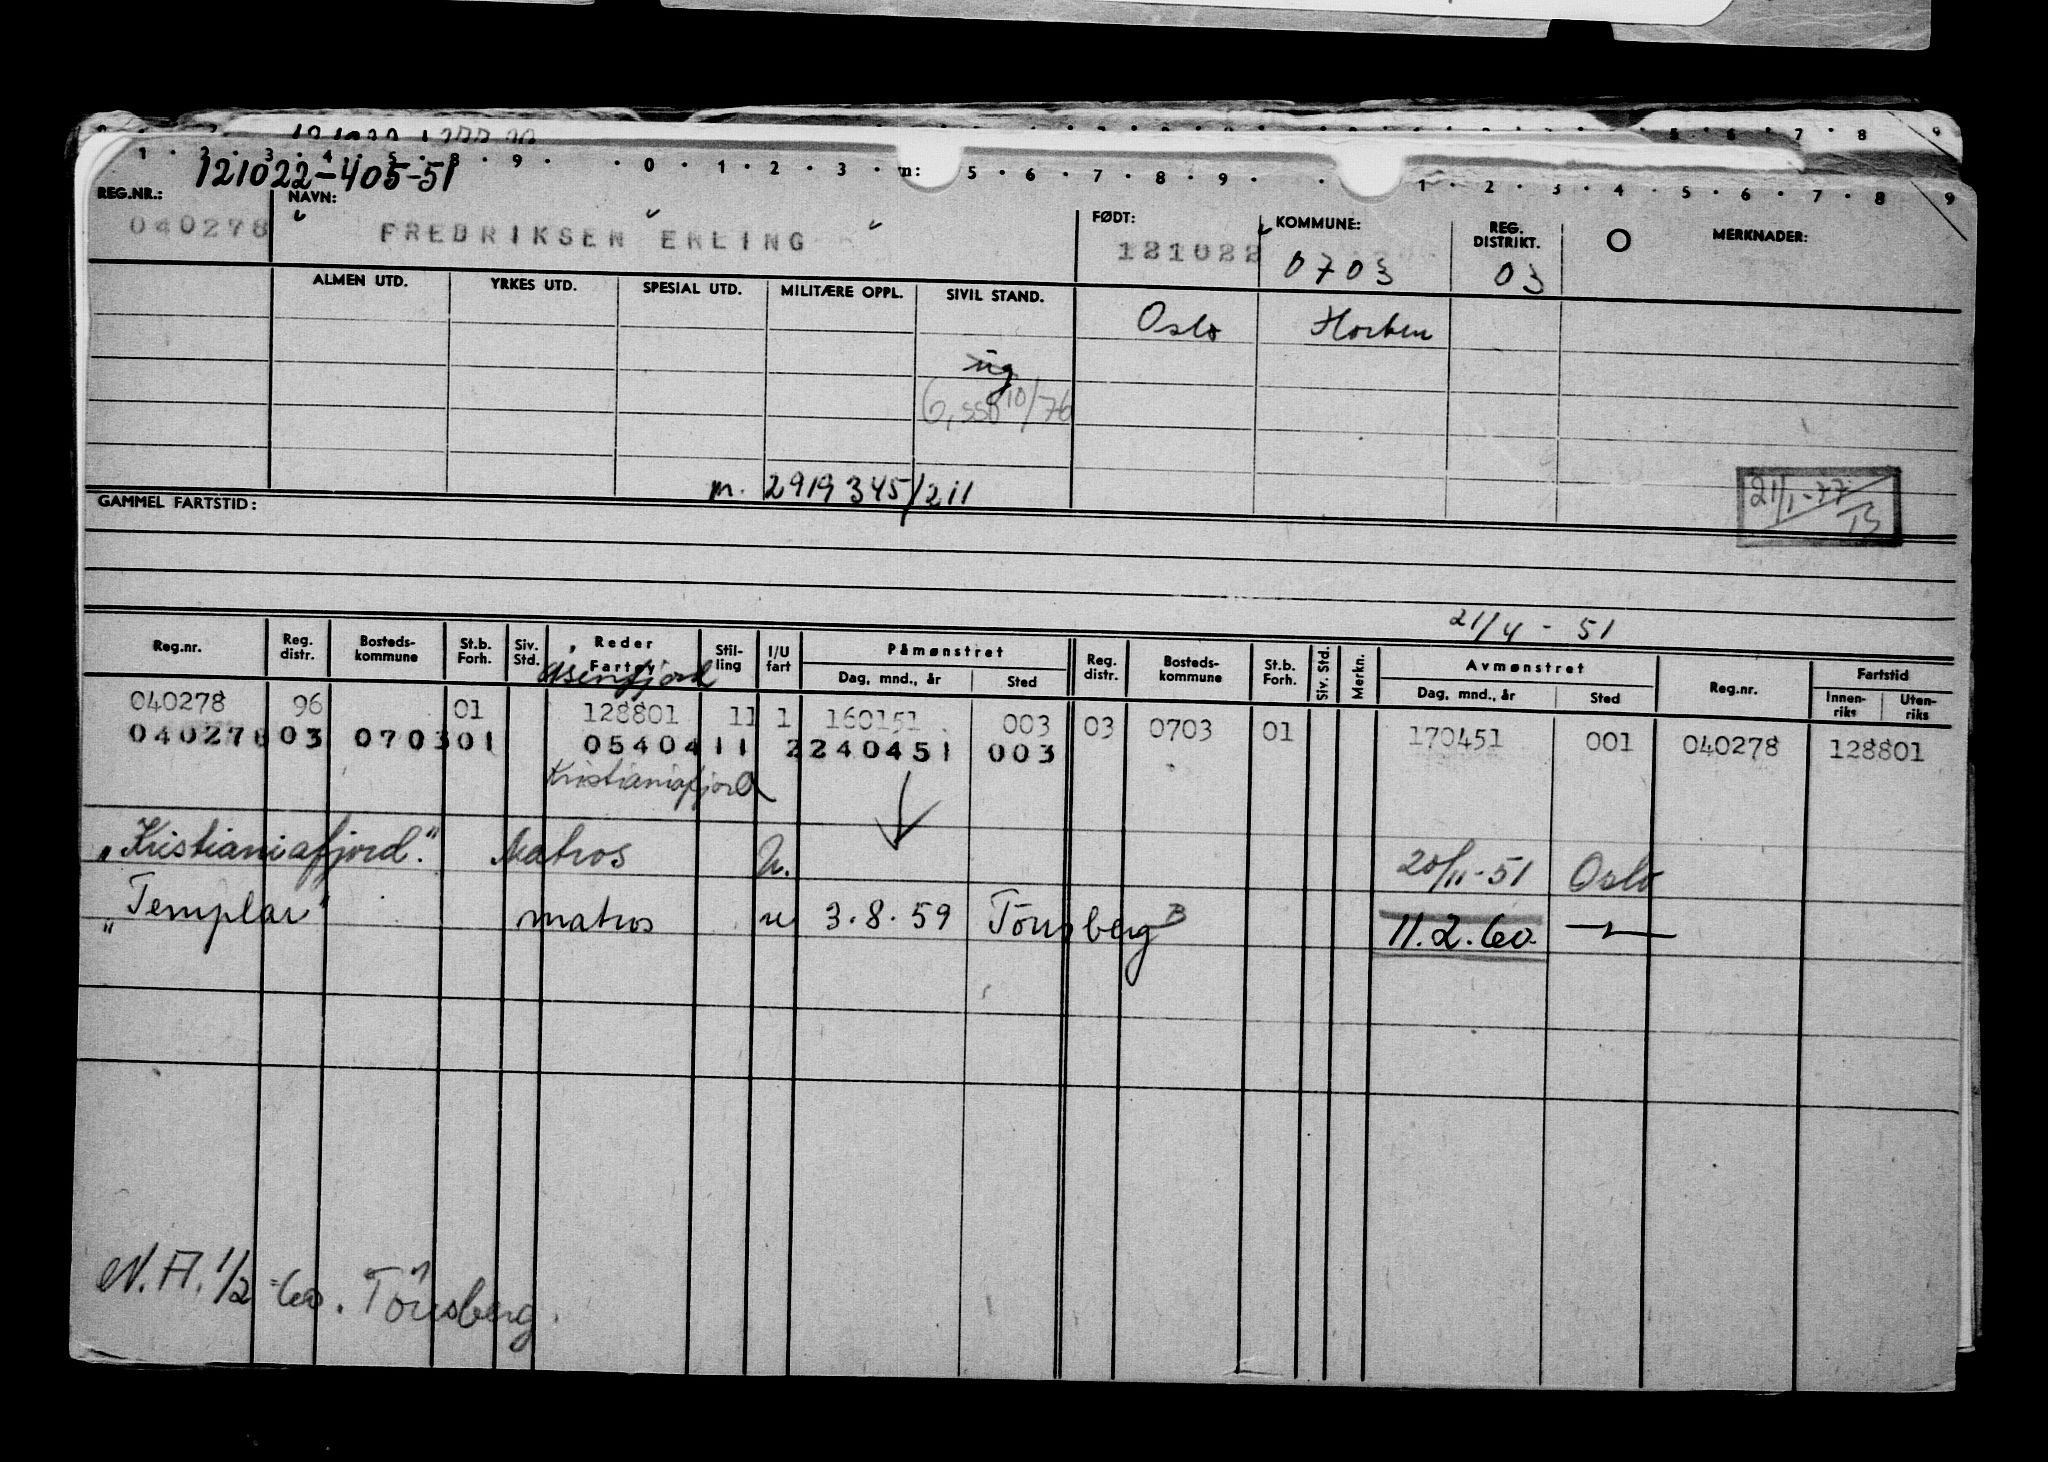 1 2 3 4 5 8 9 0 1 2 3 n: 5 6 7 8 9 1 2 3 4 5 6 7 8 9
121022-405-51
REG.NR.: NAVN: FØDT: KOMMUNE: REG. DISTRIKT. O MERKNADER:
040278 FREDRIKSEN ERLING 121022 0703 03
ALMEN UTD. YRKES UTD. SPESIAL UTD. MILITÆRE OPPL. SIVIL STAND.
Oslo Horten
ug
10/76
m. 2919345/211
21/1-77
GAMMEL FARTSTID:
21/4 - 51
Reg.nr. Reg. distr. Bosteds- kommune St.b. Forh. Siv. Std. Reder Fartøy Stil- ling I/U fart Påmønstret Dag, mnd., år Sted Reg. distr. Bosteds- kommune St.b. Forh. Siv. Std. Merkn. Avmønstret Dag, mnd., år Sted Reg.nr. Fartstid Innen- riks Uten- riks
040278 96 01 128801 11 1 160151 003 03 0703 01 170451 001 040278 128801
040278 03 0703 01 05404 11 2 240451 003
Kristianiafjord
„Kristianiafjord." Matros u. 20/11-51 Oslo
„Templar" matros u 3.8.59 Tönsberg B 11.2.60
N.A. 1/2 -60. Tönsberg.